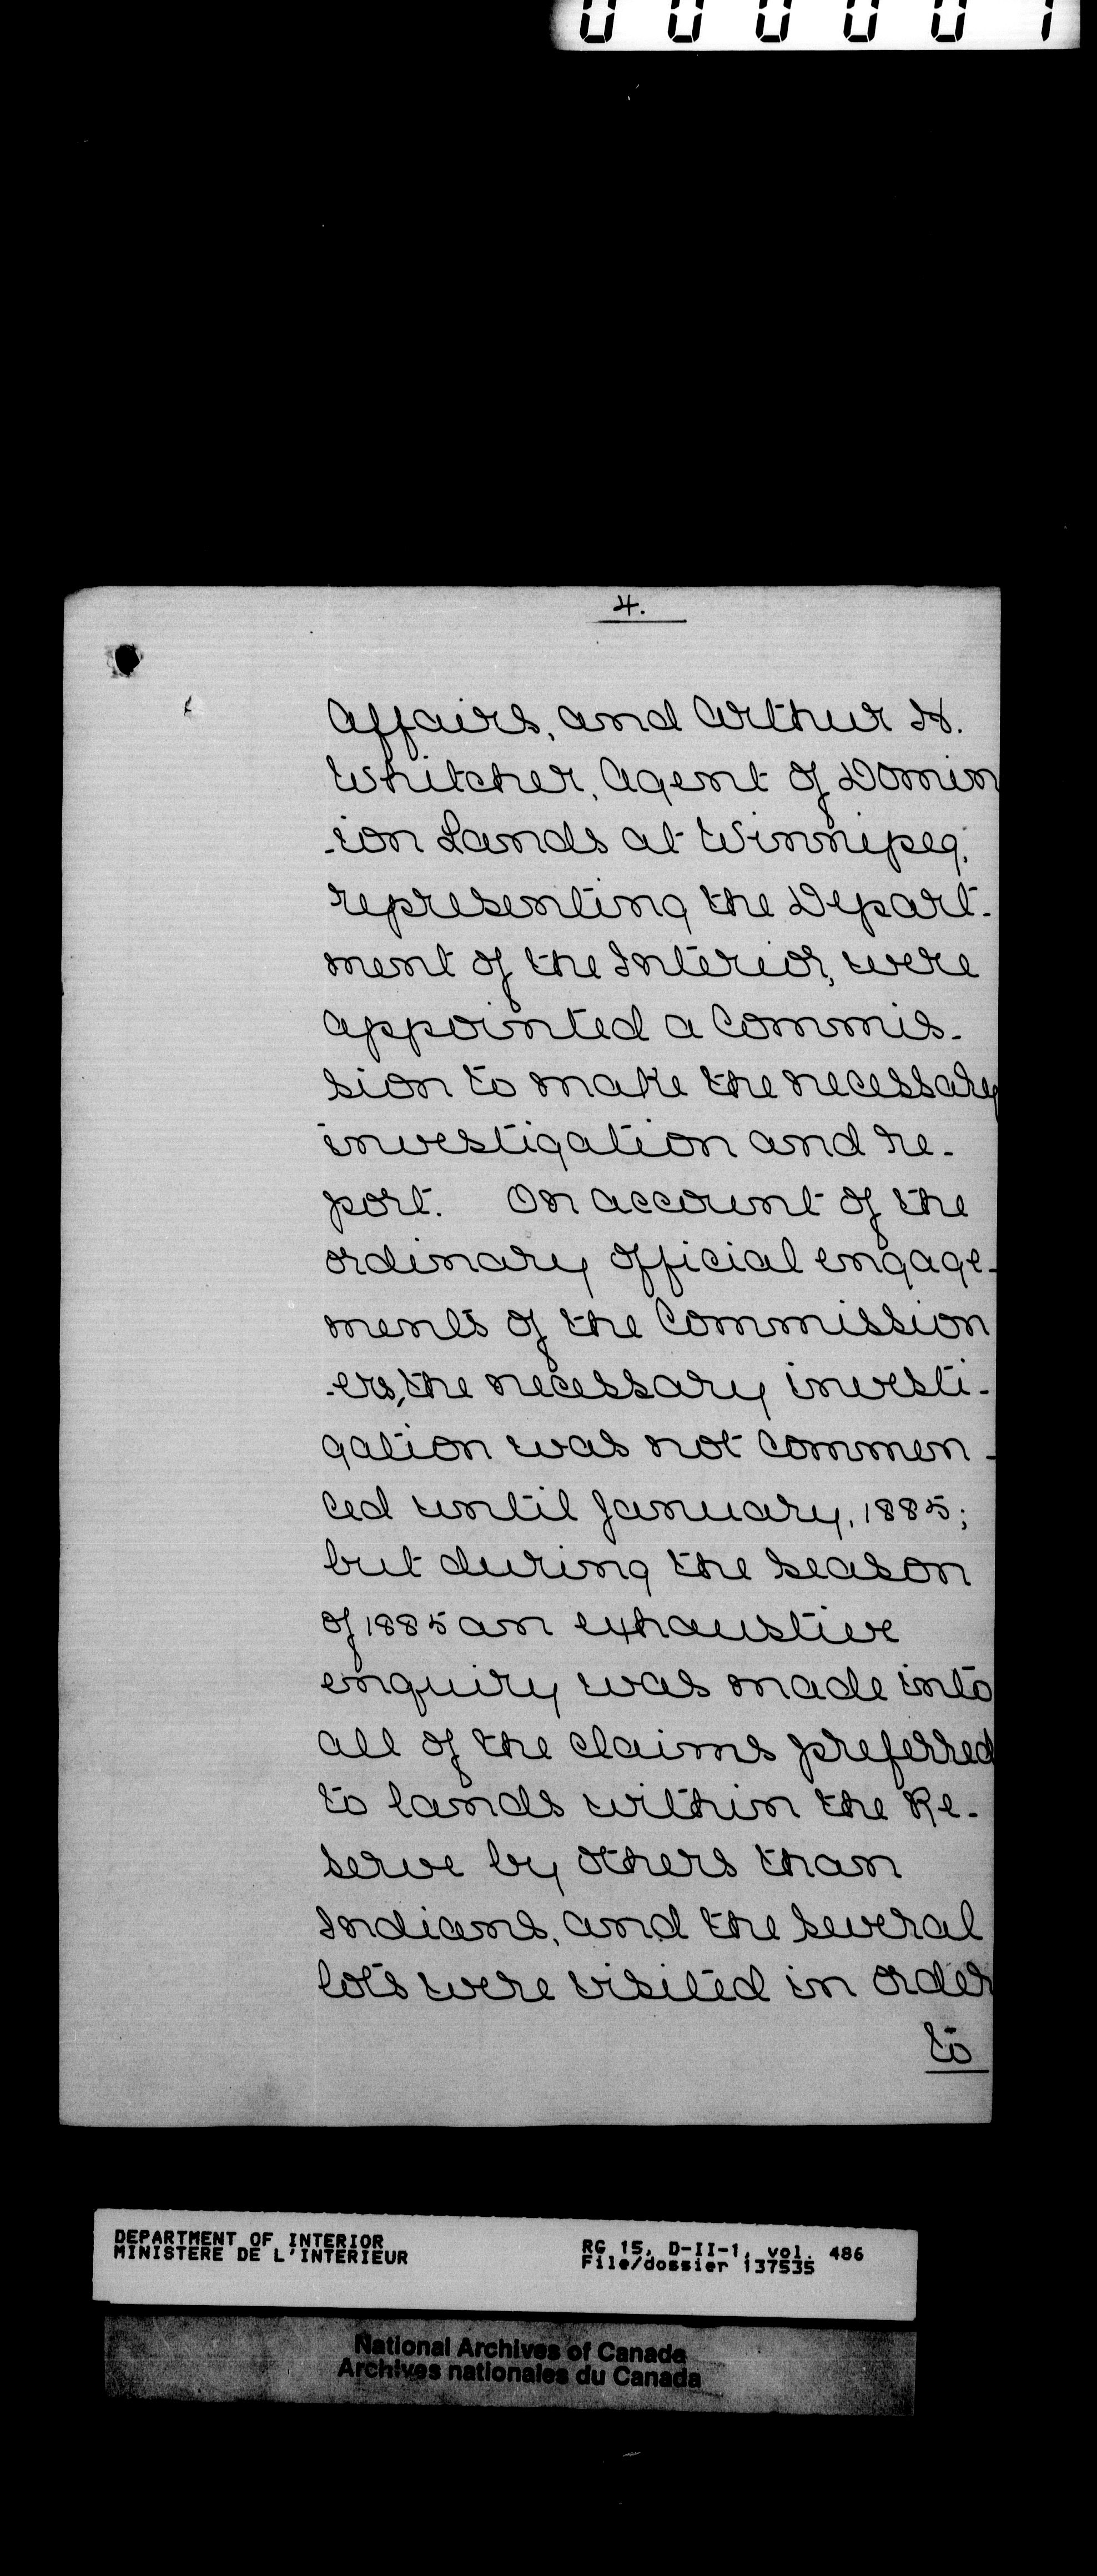 4.
Affairs, and Arthur H.
Whitcher, Agent of Domin
-ion Lands at Winnipeg,
representing the Depart-
ment of the Interior, were
appointed a Commis-
sion to make the necessary
investigation and re-
port. On account of the
ordinary official engage-
ments of the Commission
-ers, the necessary investi-
gation was not commen-
ced until January, 1885;
but during the season
of 1885 an exhaustive
enquiry was made into
all of the claims preferred
to lands within the Re-
serve by others than
Indians, and the several
lots were visited in order
to
DEPARTMENT OF INTERIOR
MINISTERE DE L'INTERIEUR
RG 15, D-II-1, vol. 486
File/dossier 137535
National Archives of Canada
Archives nationales du Canada